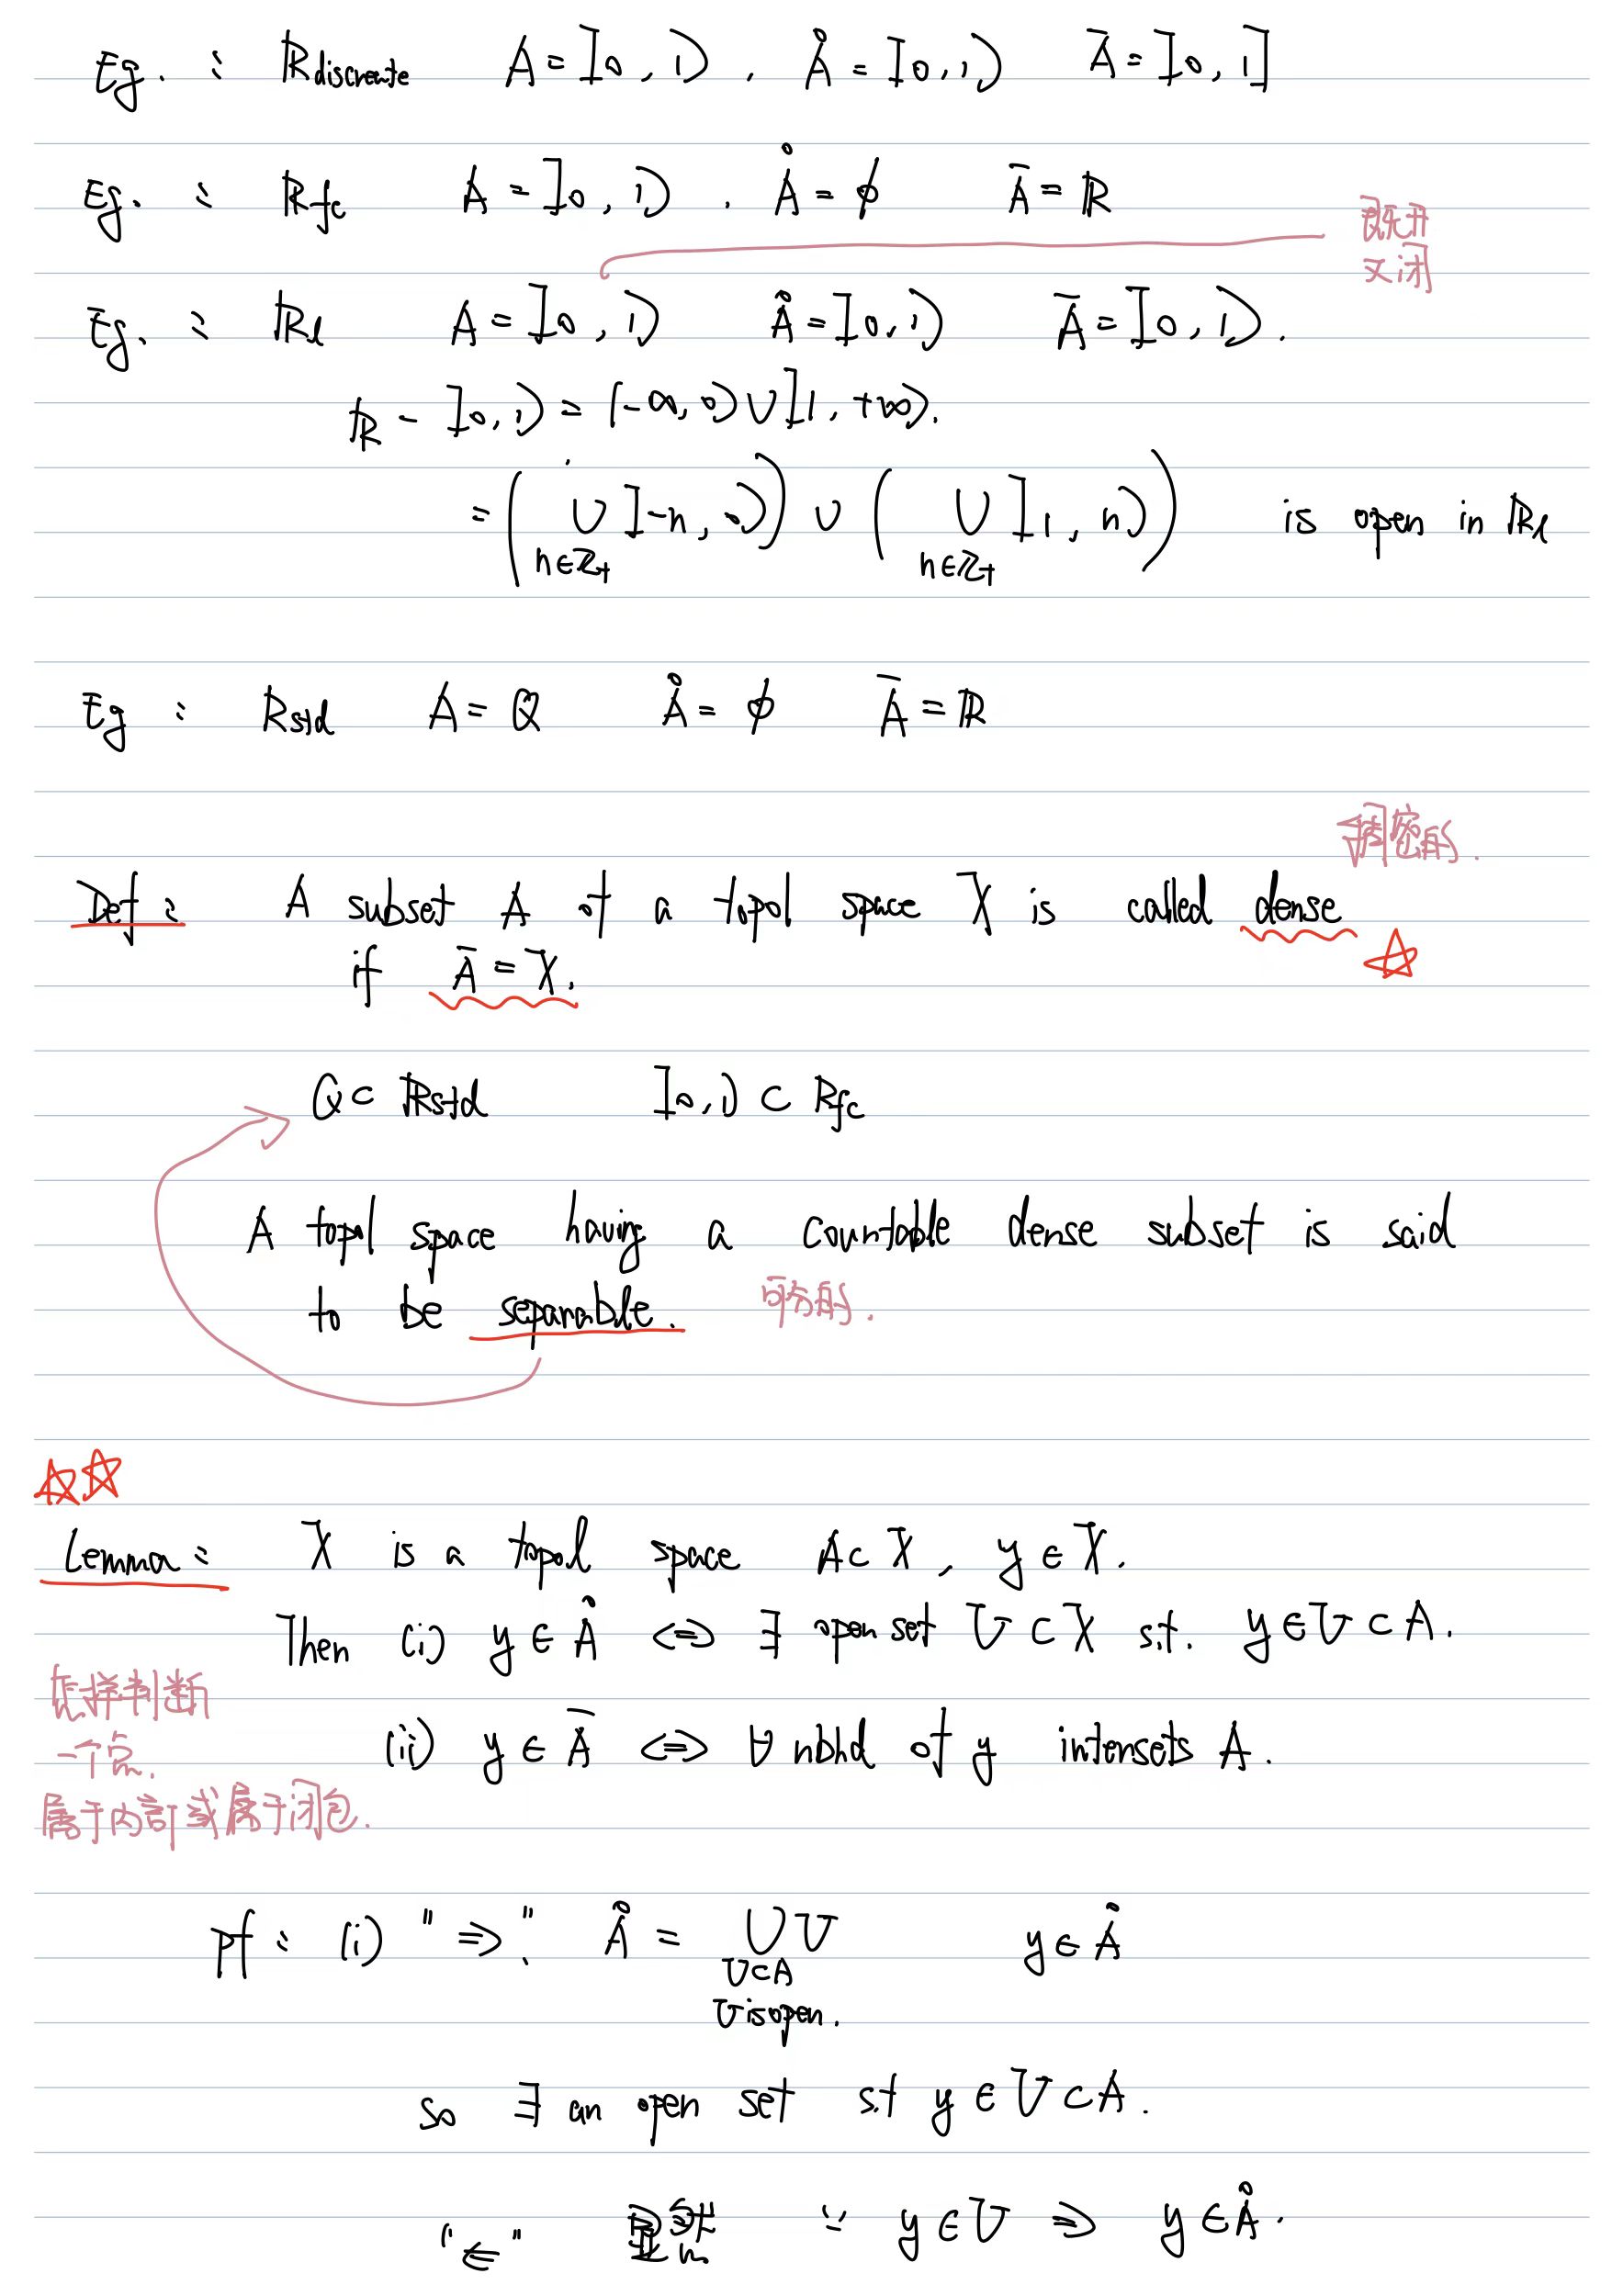 Eg. : ℝdiscreate A = [0, 1) , Å = [0, 1) Ā = [0, 1]
Eg. : ℝfc A = [0, 1) . Å = ∅ Ā = ℝ
既开
又闭
Eg. : ℝl A = [0, 1) Å = [0, 1) Ā = [0, 1).
ℝ - [0, 1) = (-∞, 0) ∪ [1, +∞).
= (∪ [-n, 0)) ∪ (∪ [1, n)) is open in ℝl
n∈ℤ+ n∈ℤ+
Eg : ℝstd A = Q Å = ∅ Ā = ℝ
稠密的.
Def : A subset A of a topol space X is called dense
if Ā = X.
Q ⊂ ℝstd [0, 1) ⊂ ℝfc
A topol space having a countable dense subset is said
to be separable. 可分的.
Lemma : X is a topol space A ⊂ X, y ∈ X.
Then (i) y ∈ Å ⇔ ∃ open set U ⊂ X s.t. y ∈ U ⊂ A.
怎样判断
一个点.
属于内部或属于闭包.
(ii) y ∈ Ā ⇔ ∀ nbhd of y intersets A.
pf : (i) "⇒". Å = ∪ U y ∈ Å
U⊂A
U is open.
so ∃ an open set s.t y ∈ U ⊂ A.
"⇐" 显然 ∵ y ∈ U ⇒ y ∈ Å.